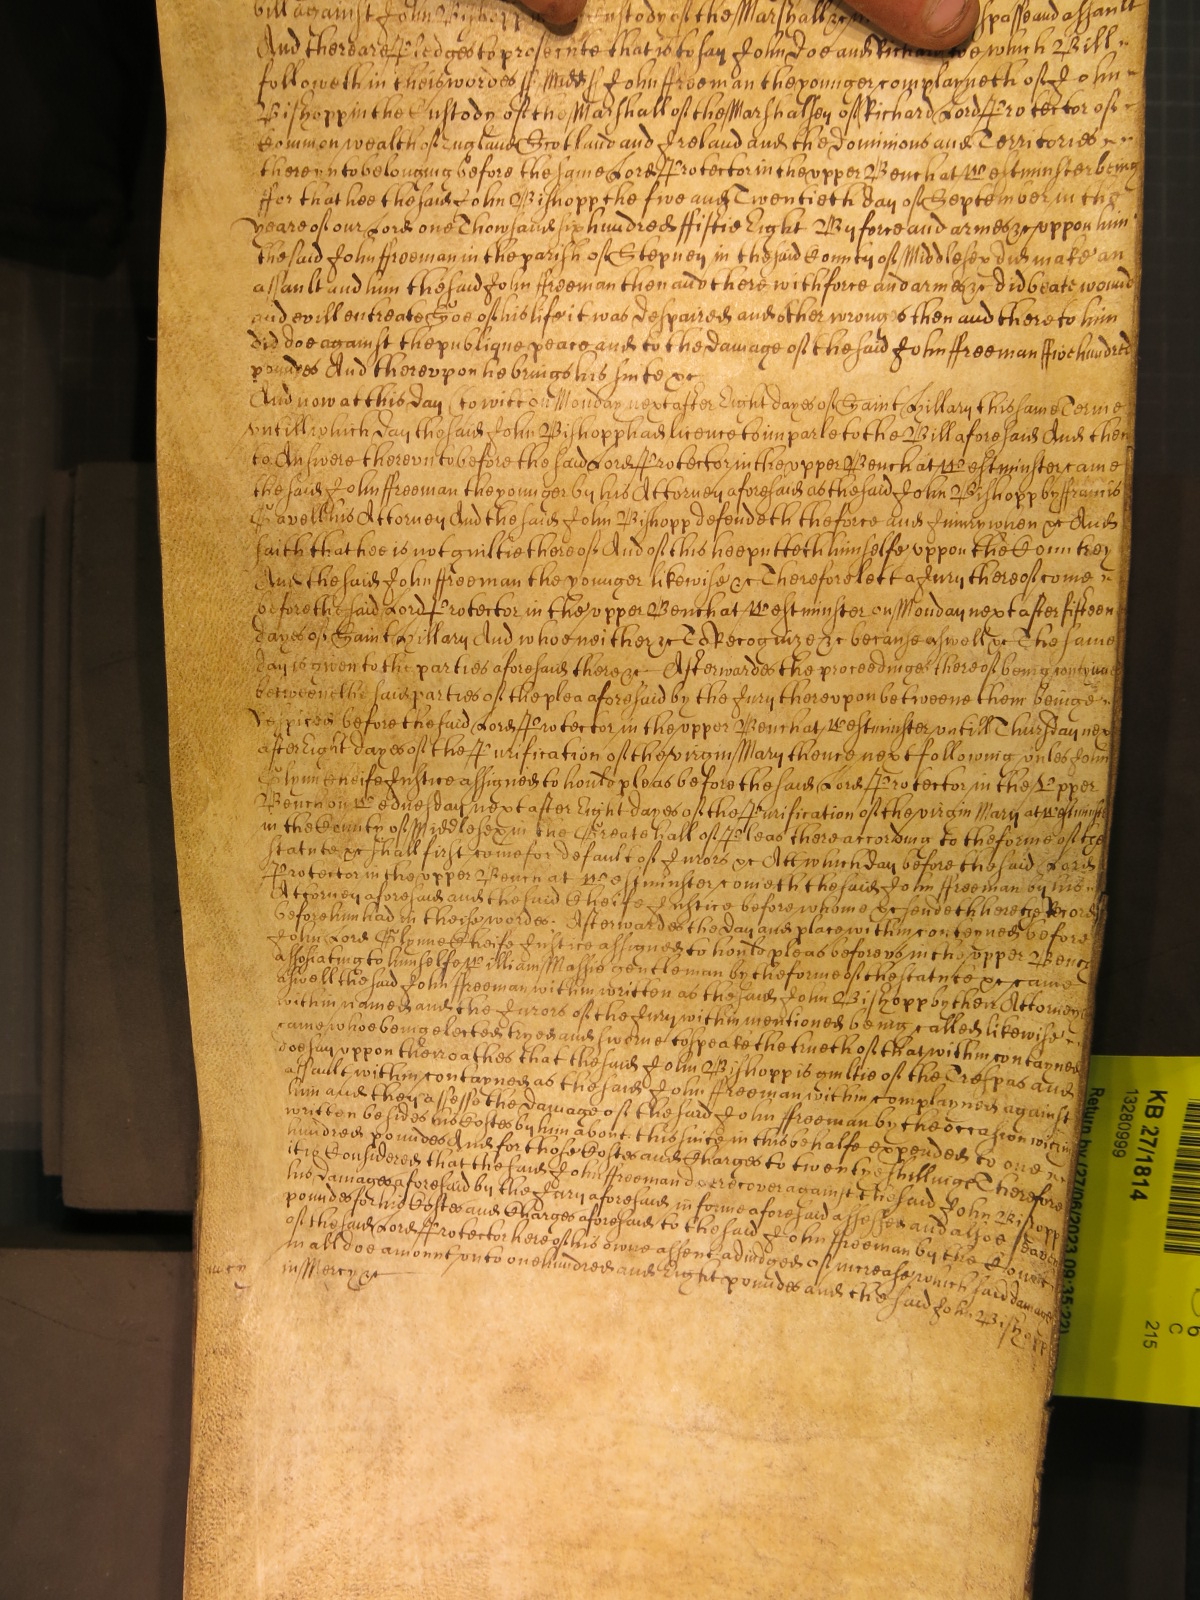 bill against John Bishopp in the Custody of the Marshall &c spasse and assault
And there are Pledges to prosecute that is to say John Doe and Richard Roe which Bill
followeth in theis wordes ss Midds ss John ffreeman the younger complayneth of John
Bishopp in the Custody of the Marshall of the Marshalsey of Richard Lord Protector of
Common wealth of England Scotland and Ireland and the Dominions and Territories
thereunto belonging before the same Lord Protector in the upper Bench at Westminster being
ffor that hee the said John Bishopp the five and Twentieth day of September in the
yeare of our Lord one Thowsand six hundred ffiftie Eight By force and armes &c uppon him
the said John ffreeman in the parish of Stepney in the said County of Middlesex did make an
assault and him the said John ffreeman then and there with force and armes &c did beate wound
and evill entreate Soe of his life it was despaired and other wronges then and there to him
did doe against the publique peace and to the damage of the said John ffreeman ffive hundred
poundes And thereupon he brings his suite &c
And now at this day (to witt on Monday next after Eight dayes of Saint Hillary this same Terme
untill which day the said John Bishopp had licence to imparle to the Bill aforesaid And then
to Answere thereunto before the said Lord Protector in the upper Bench at Westminster came
the said John ffreeman the younger by his Attorney aforesaid as the said John Bishopp by ffrancis
his Attorney And the said John Bishopp defendeth the force and Iniury when &c And
saith that hee is not guiltie thereof And of this hee putteth himselfe uppon the Countrey
And the said John ffreeman the younger likewise &c Therefore lett a Jury thereof come
before the said Lord Protector in the upper Bench at Westminster on Monday next after fifteen
dayes of Saint Hillary And whoe neither &c To Recognize &c because aswell &c The same
day is given to the parties aforesaid there &c Afterwardes the proceedinges thereof being continued
betweene the said parties of the plea aforesaid by the Jury thereupon betweene them beinge
respited before the said Lord Protector in the upper Bench at Westminster untill Thursday next
after Eight dayes of the Purification of the virgin Mary thence next following unles John
Glynn cheife Justice assigned to hould pleas before the said Lord Protector in the Upper
Bench on Wednesday next after Eight dayes of the Purification of the virgin Mary at Westminster
in the County of Middlesex in the Greate hall of Pleas there according to the forme of the
statute &c shall first come for default of Jurors &c Att which day before the said Lord
Protector in the upper Bench at Westminster cometh the said John ffreeman by his
Attorney aforesaid and the said Cheife Justice before whome &c sendeth here the Record
before him had in theise wordes. Afterwardes the day and place within conteyned before
John Lord Glynne Cheife Justice assigned to hould pleas before us in the upper Bench
assosiating to himselfe William Massie gentleman by the forme of the statute &c came
aswell the said John ffreeman within written as the said John Bishopp by their Attorneys
within named and the Jurors of the Jury within mentioned being called likewise
came whoe being elected tryed and sworne to speake the trueth of that within contayned
doe say uppon their oathes that the said John Bishopp is guiltie of the Trespas and
assault within contayned as the said John ffreeman within complayned against
him and they assesse the damage of the said John ffreeman by the occasion within
written besides his Costes by him about this suite in this behalfe expended to one
hundred poundes And for those Costes and Charges to twenty shillings Therefore
it is Considered that the said John ffreeman doe recover against the said John Bishopp
his damages aforesaid by the Jury aforesaid in forme aforesaid assessed and alsoe seaven
poundes for his Costes and Charges aforesaid to the said John ffreeman by the Court
of the said Lord Protector here of his owne assent adiudged of increase which said damages
in all doe amount unto one hundred and Eight poundes and the said John Bishopp
mercy in Mercy &c
KB 27/1814
13280999
Return by (27/06/2023 09:35:22)
6
C
215